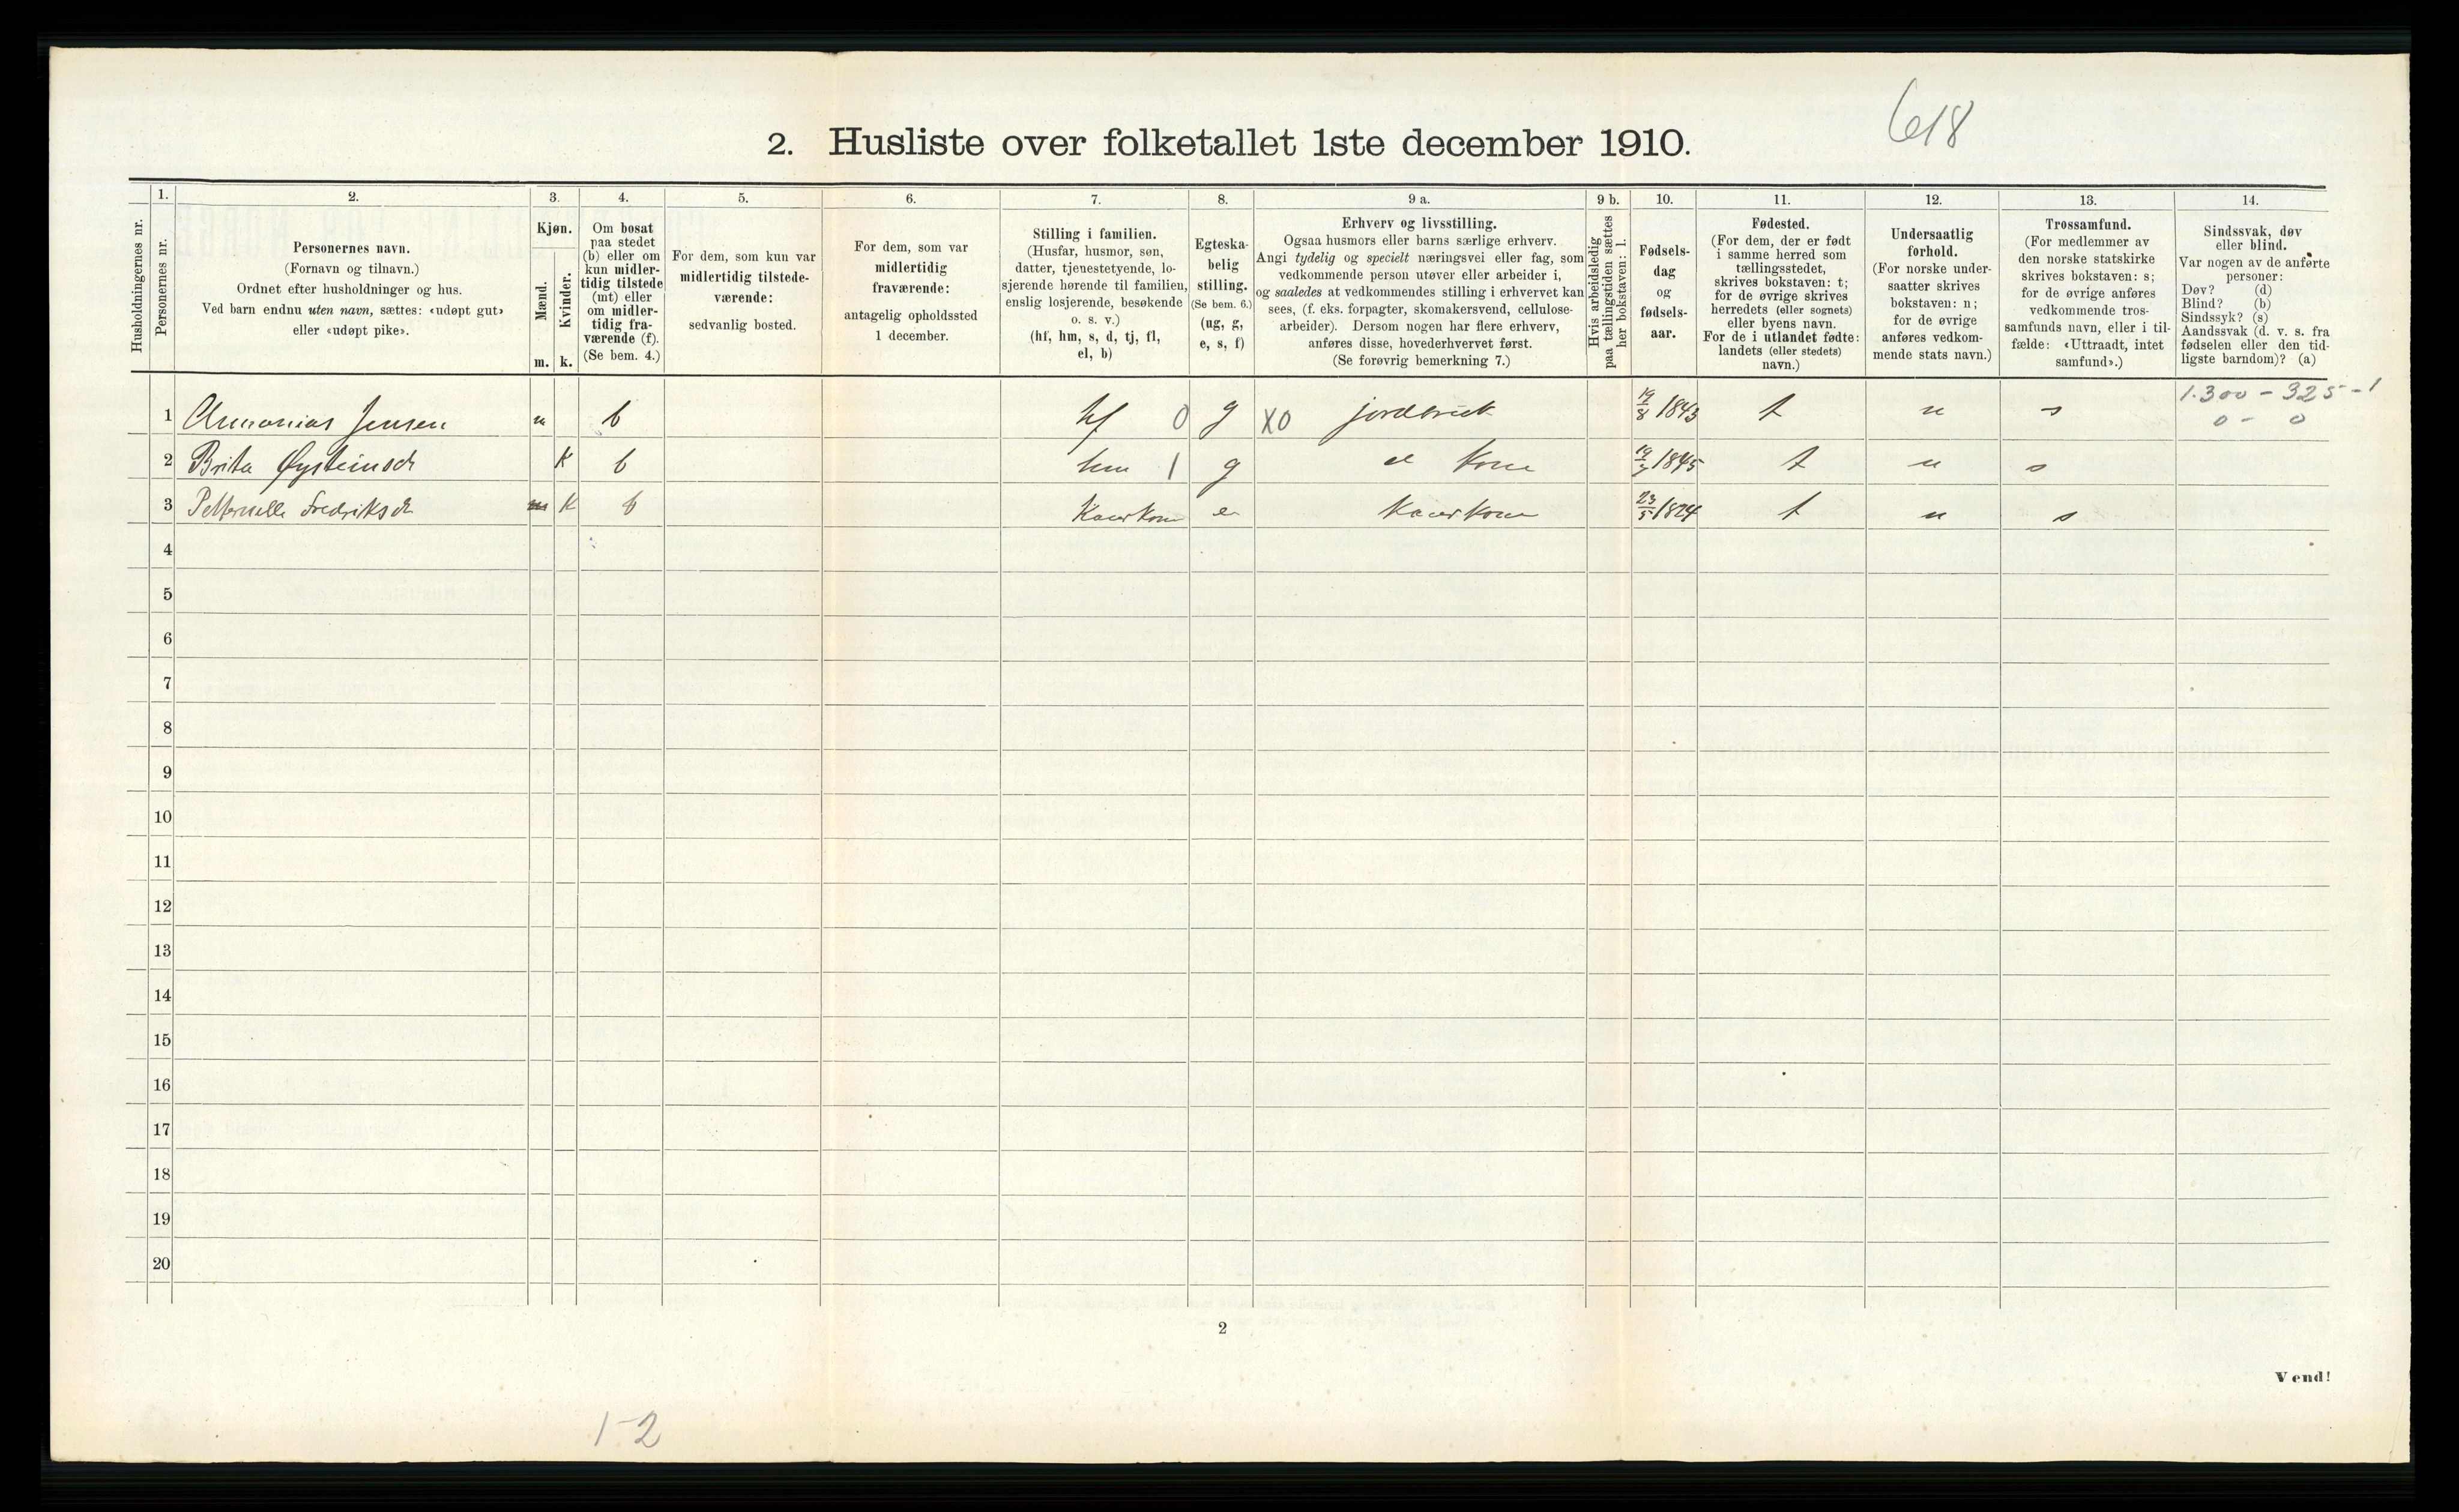 618
2. Husliste over folketallet 1ste december 1910.
Husholdningernes nr.
1.
Personernes nr.
2.
Personernes navn.
(Fornavn og tilnavn.)
Ordnet efter husholdninger og hus.
Ved barn endnu uten navn, sættes: «udøpt gut»
eller «udøpt pike».
3.
Kjøn.
Mænd.
Kvinder.
m. k.
4.
Om bosat
paa stedet
(b) eller om
kun midler-
tidig tilstede
(mt) eller
om midler-
tidig fra-
værende (f).
(Se bem. 4.)
5.
For dem, som kun var
midlertidig tilstede-
værende:
sedvanlig bosted.
6.
For dem, som var
midlertidig
fraværende:
antagelig opholdssted
1 december.
7.
Stilling i familien.
(Husfar, husmor, søn,
datter, tjenestetyende, lo-
sjerende hørende til familien,
enslig losjerende, besøkende
o. s. v.)
(hf, hm, s, d, tj, fl,
el, b)
8.
Egteska-
belig
stilling.
(Se bem. 6.)
(ug, g,
e, s, f)
9 a.
Erhverv og livsstilling.
Ogsaa husmors eller barns særlige erhverv.
Angi tydelig og specielt næringsvei eller fag, som
vedkommende person utøver eller arbeider i,
og saaledes at vedkommendes stilling i erhvervet kan
sees, (f. eks. forpagter, skomakersvend, cellulose-
arbeider). Dersom nogen har flere erhverv,
anføres disse, hovederhvervet først.
(Se forøvrig bemerkning 7.)
9 b.
Hvis arbeidsledig
paa tællingstiden sættes
her bokstaven: l.
10.
Fødsels-
dag
og
fødsels-
aar.
11.
Fødested.
(For dem, der er født
i samme herred som
tællingsstedet,
skrives bokstaven: t;
for de øvrige skrives
herredets (eller sognets)
eller byens navn.
For de i utlandet fødte:
landets (eller stedets)
navn.)
12.
Undersaatlig
forhold.
(For norske under-
saatter skrives
bokstaven: n;
for de øvrige
anføres vedkom-
mende stats navn.)
13.
Trossamfund.
(For medlemmer av
den norske statskirke
skrives bokstaven: s;
for de øvrige anføres
vedkommende tros-
samfunds navn, eller i til-
fælde: «Uttraadt, intet
samfund».)
14.
Sindssvak, døv
eller blind.
Var nogen av de anførte
personer:
Døv? (d)
Blind? (b)
Sindssyk? (s)
Aandssvak (d. v. s. fra
fødselen eller den tid-
ligste barndom)? (a)
1.300 - 325 - 1
0 - 0
1 Annanias Jensen m b hf 0 g X0 jordbruk 19/8 1843 t n s
2 Brita Øysteinsdr K b hm 1 g kone 1845 t n s
3 Fredriksdr m K b Kaarkone e Kaarkone 23/5 1824 t n s
4
5
6
7
8
9
10
11
12
13
14
15
16
17
18
19
20
2
Vend!
1-2